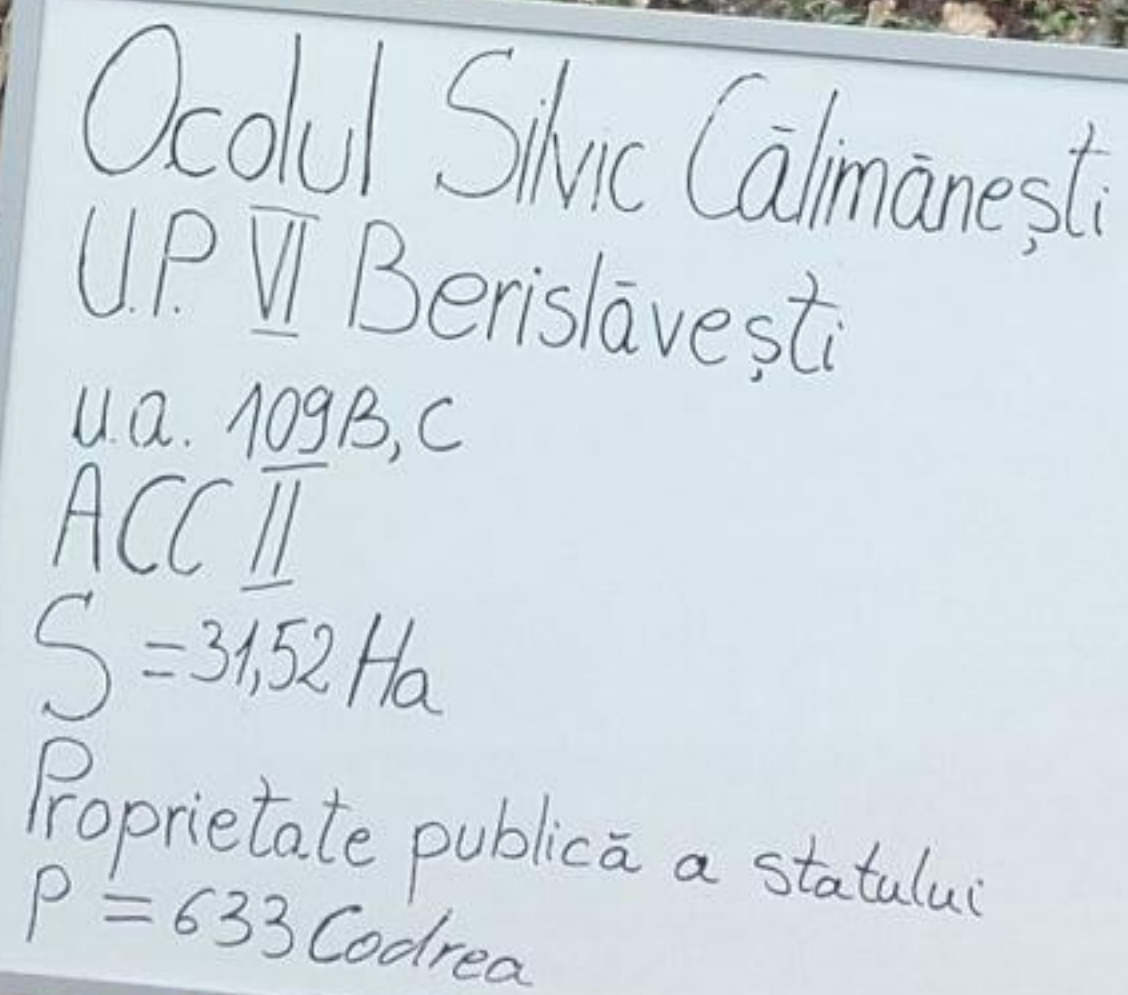 Ocolul Silvic Călimănești
U.P. VI Berislăvești
u.a. 109B, C
ACC II
S = 31,52 Ha
Proprietate publică a statului
P = 633 Codrea